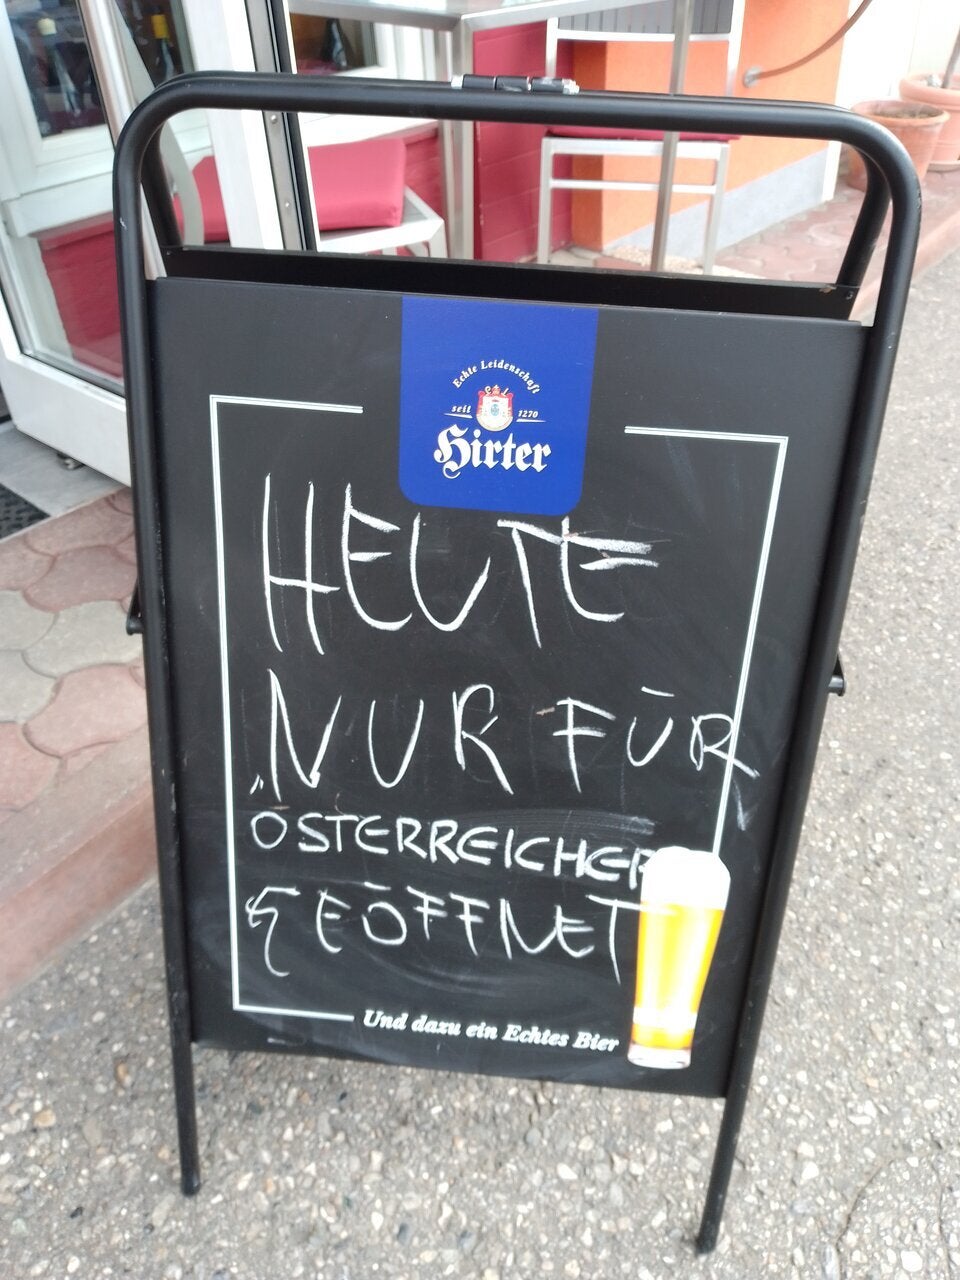 Echte Leidenschaft
seit 1270
Hirter
HEUTE
NUR FÜR
ÖSTERREICHER
GEÖFFNET
Und dazu ein Echtes Bier